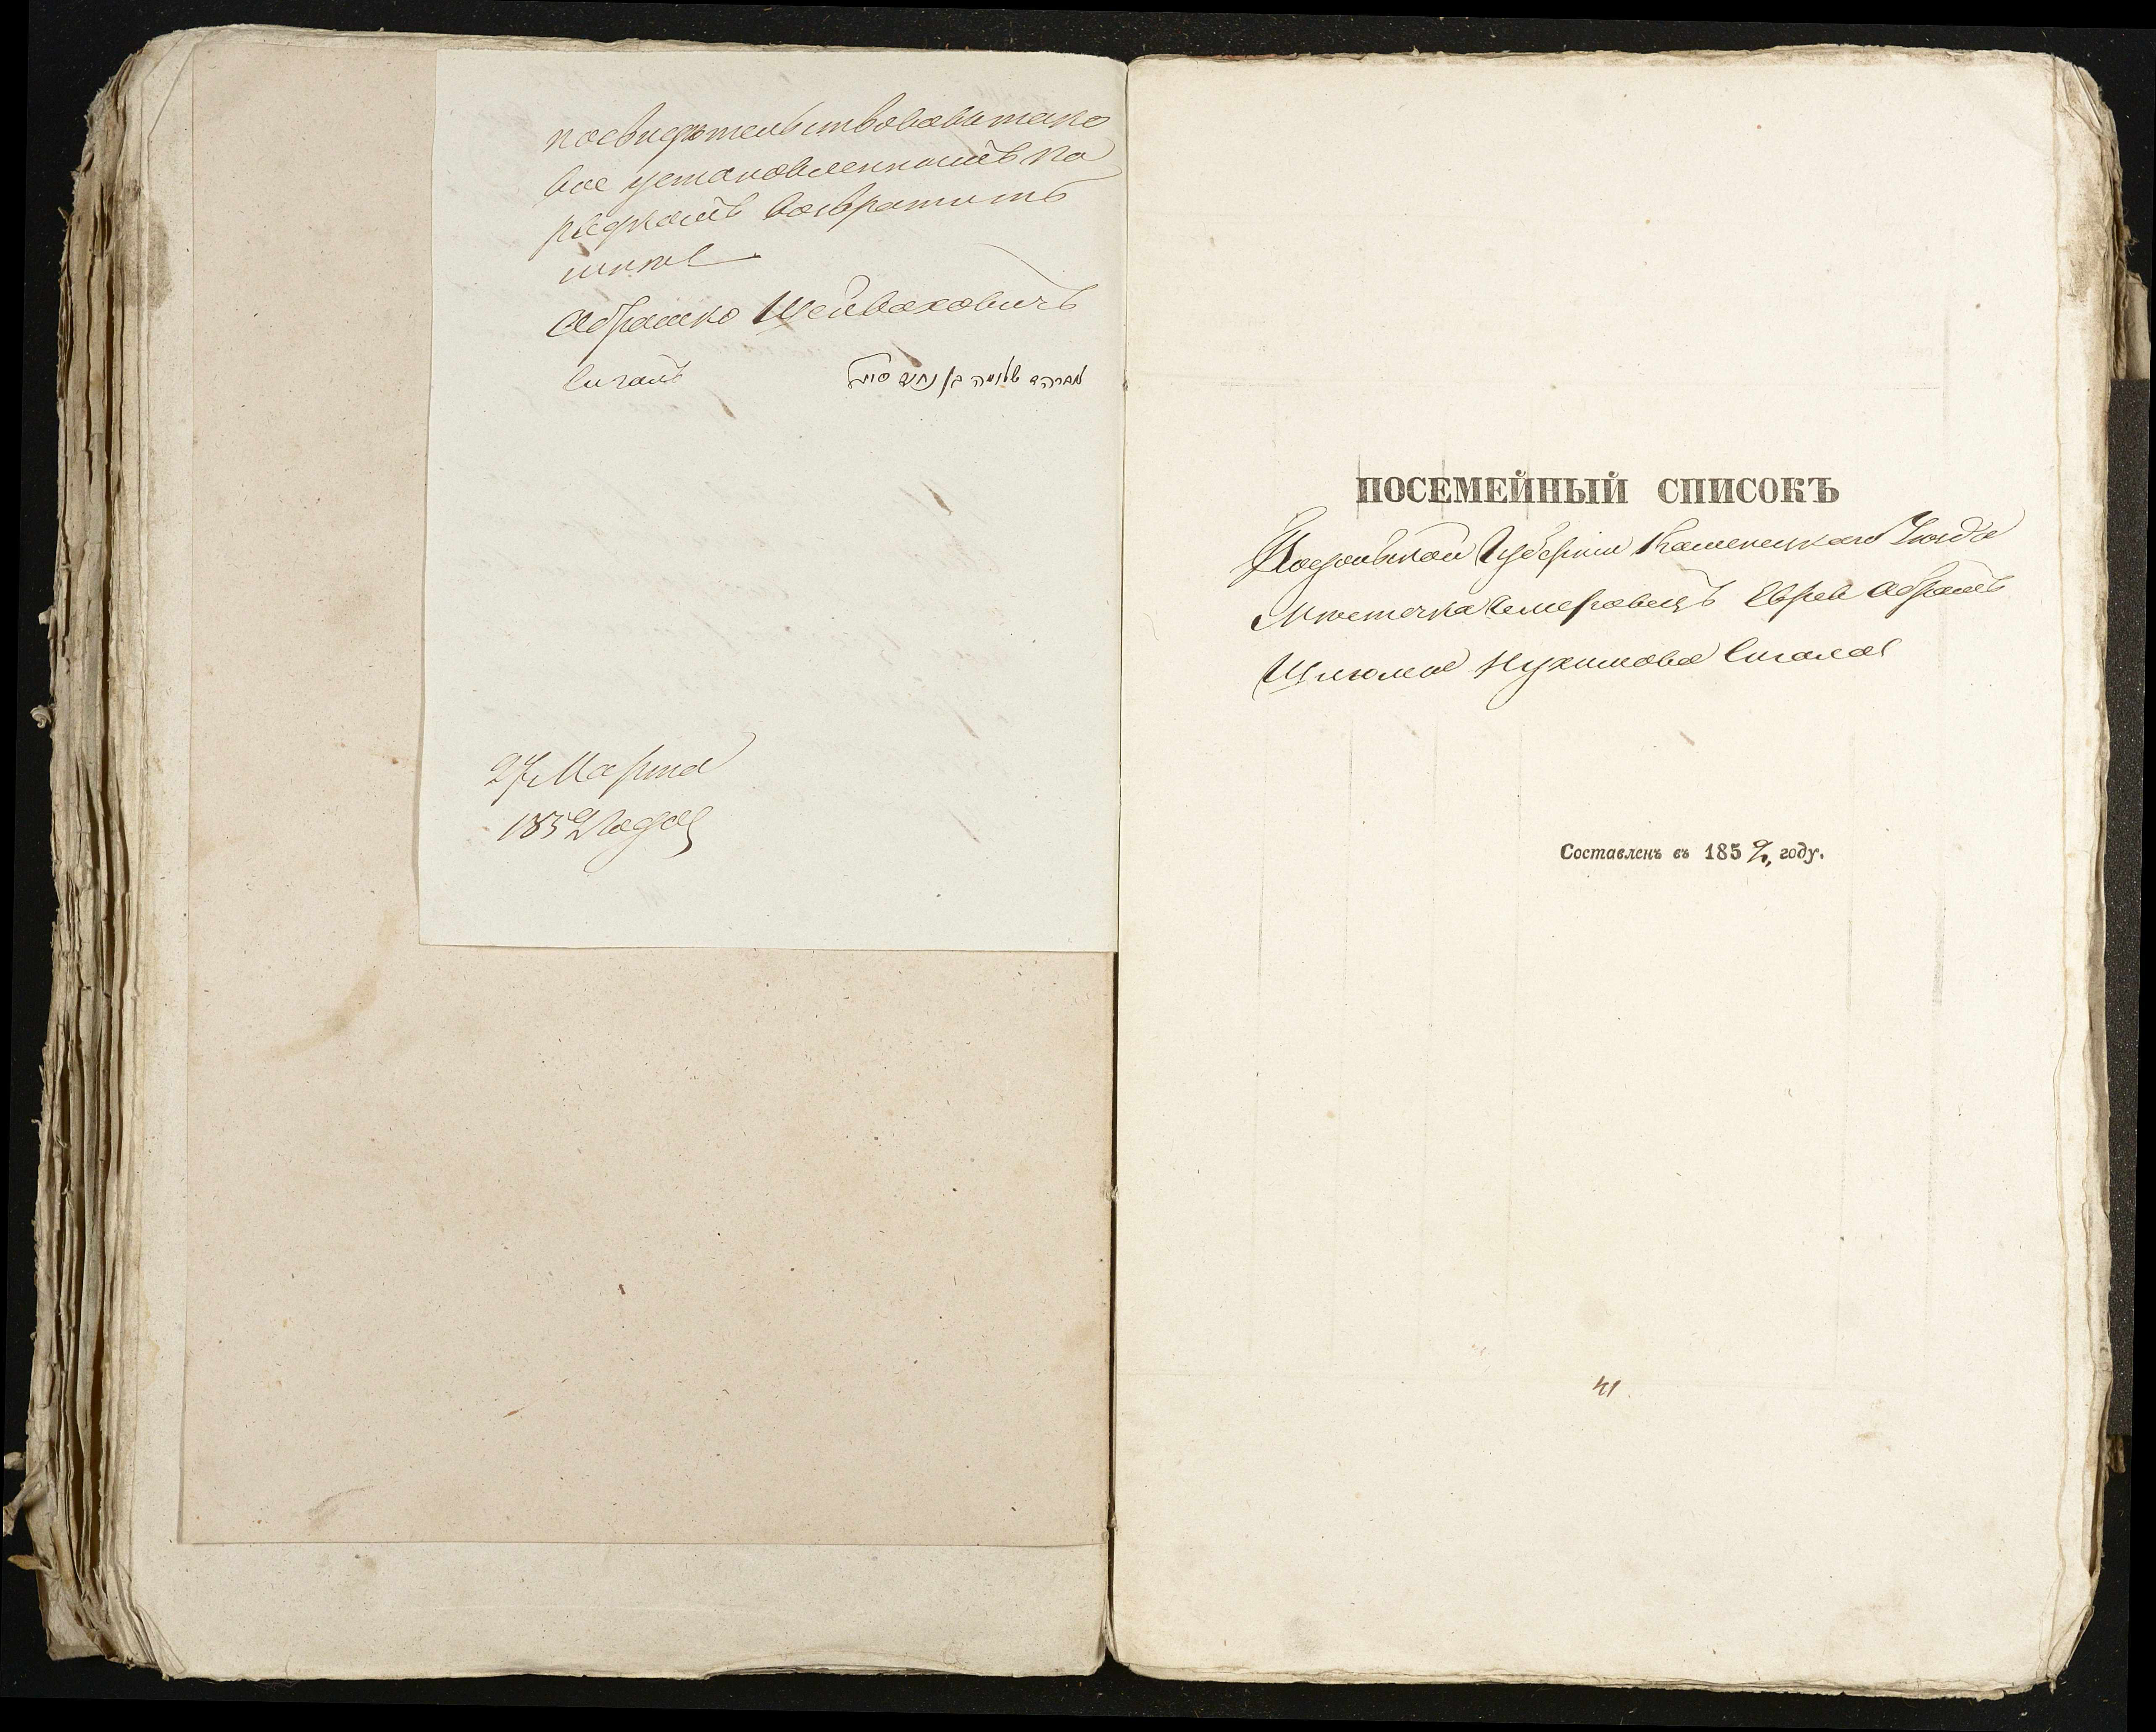 посвидѣтельствовавъ тако
вое установленнымъ по
рядкомъ возвратить
мнѣ
Абрамко
Сигалъ
אברהם שלמה בן נחום סיגל
27 Марта
1852 года
ПОСЕМЕЙНЫЙ СПИСОКЪ
Подольской Губерніи Каменецкаго Уѣзда
Мѣстечка Чемеровецъ Еврея Абрамъ
Шлиома Нухимова Сигала
Составленъ въ 1852, году.
41.